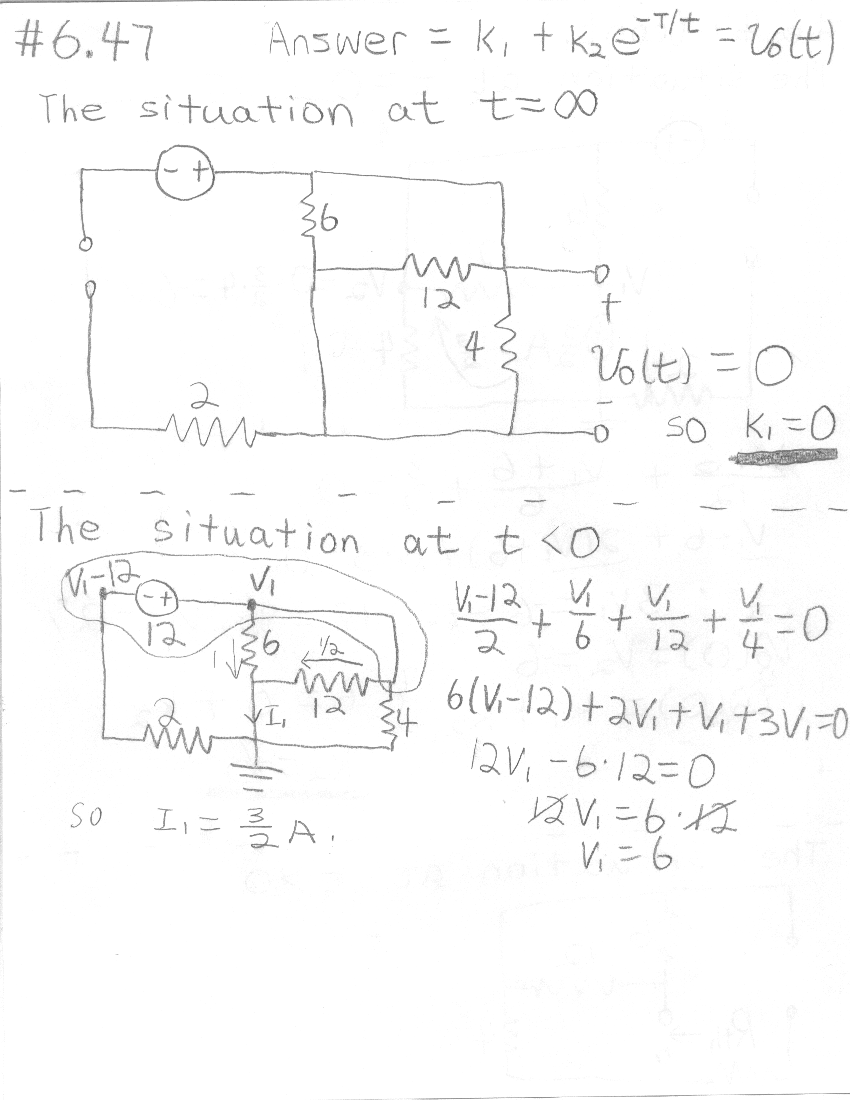 #6.47 Answer = k₁ + k₂e^(-T/t) = v₀(t)
The situation at t=∞
- +
6
12
4
+
v₀(t) = 0
-
2
so k₁=0
The situation at t<0
V₁-12 - + V₁
12
6
1
1/2
12
I₁
4
2
(V₁-12)/2 + V₁/6 + V₁/12 + V₁/4 = 0
6(V₁-12)+2V₁+V₁+3V₁=0
12V₁ - 6·12=0
12V₁ = 6·12
V₁ = 6
so I₁ = 3/2 A.